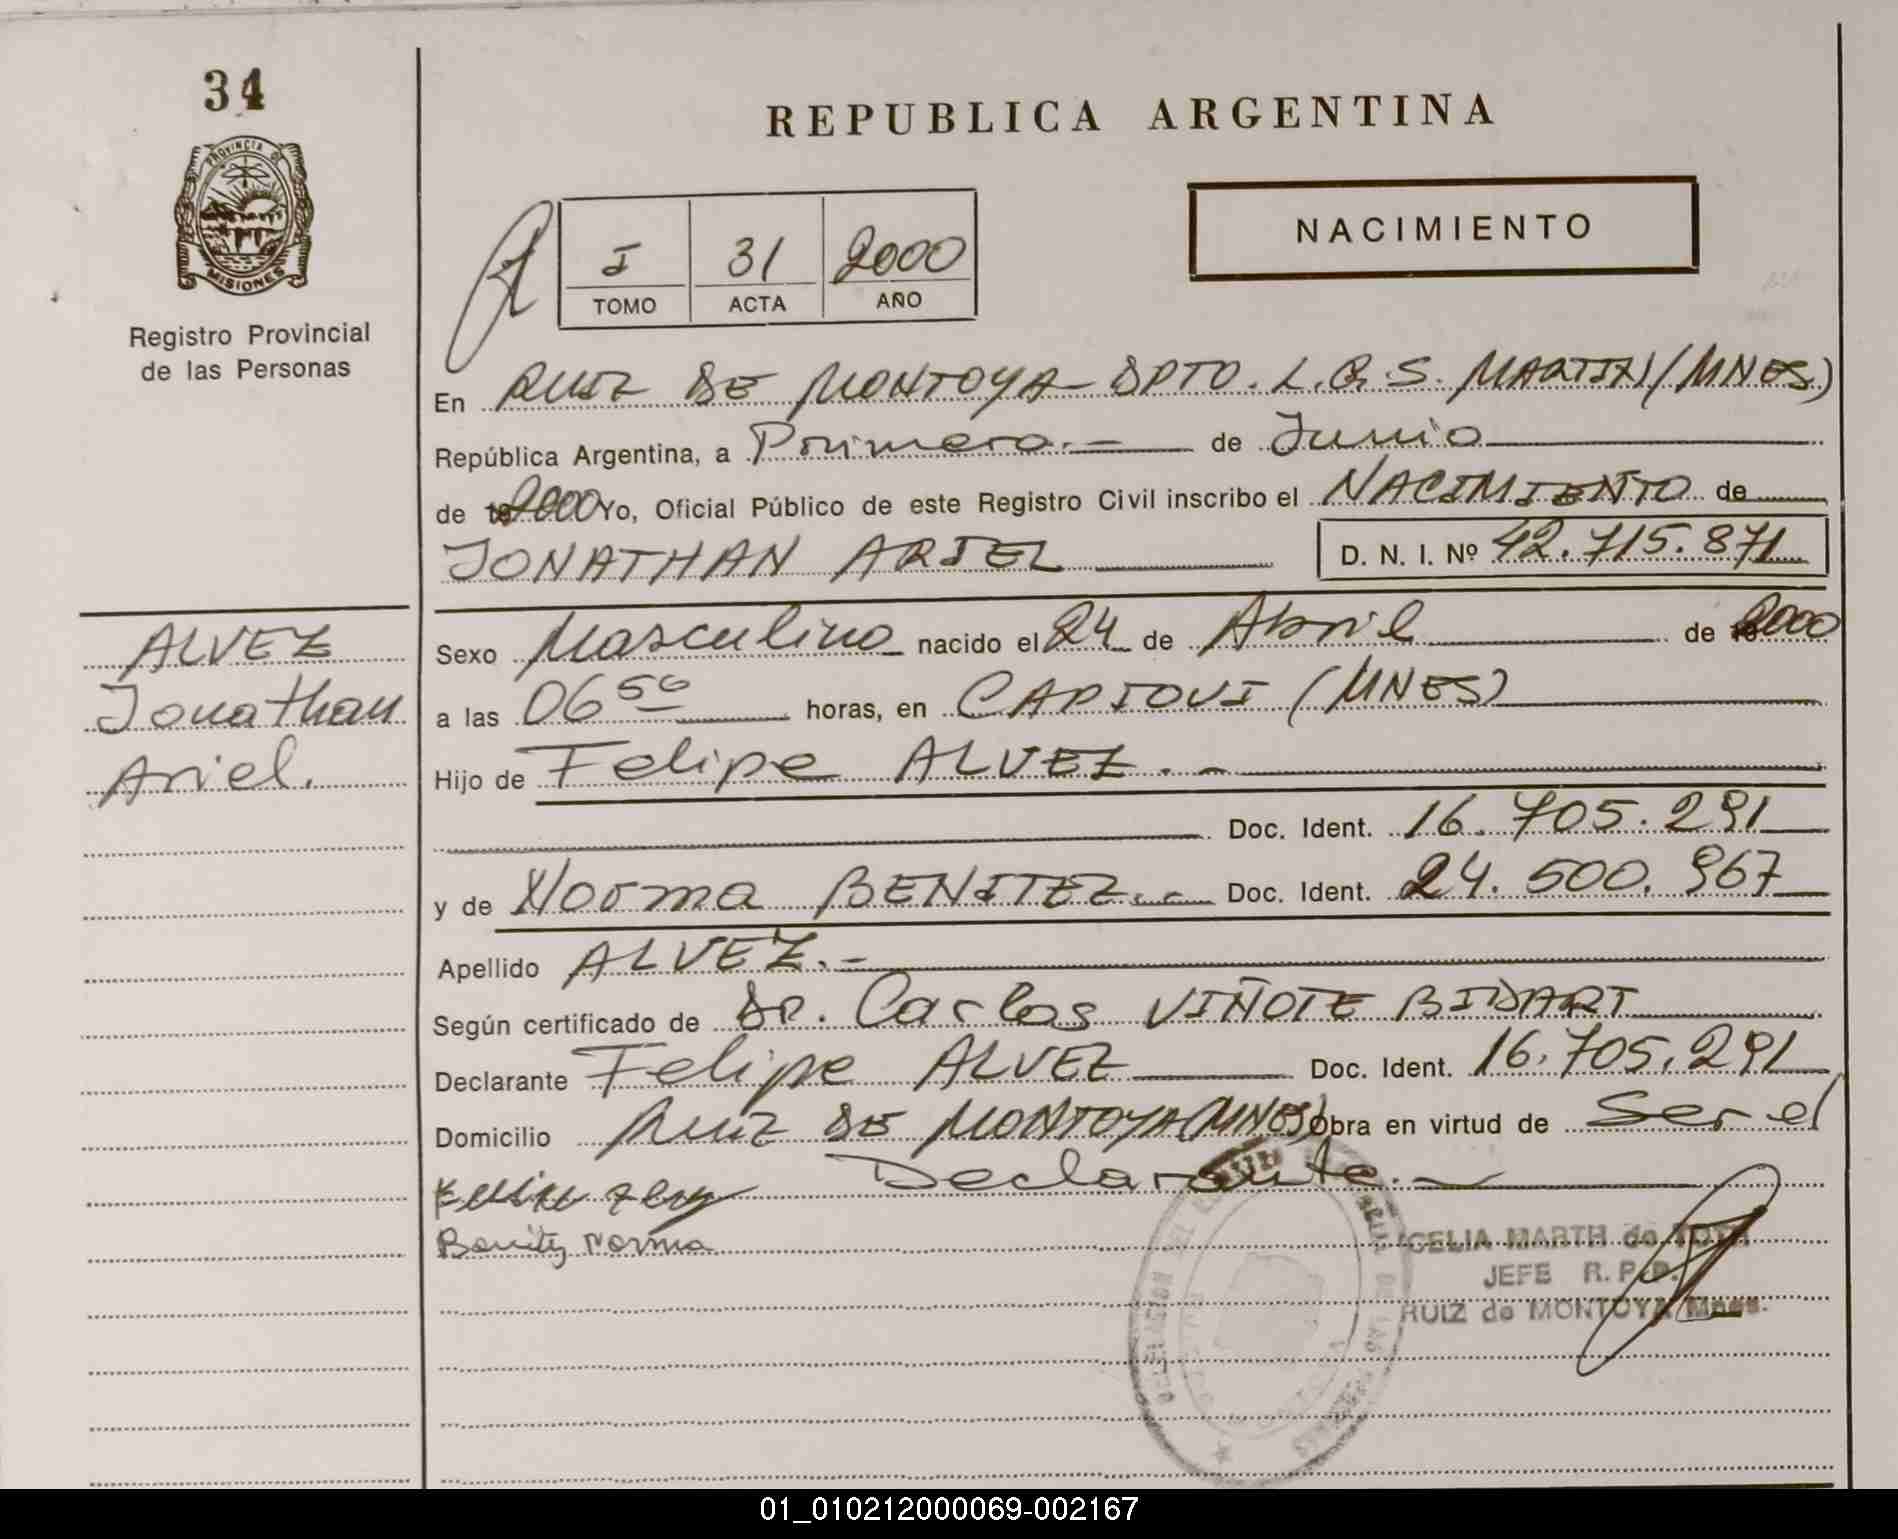 34
REPUBLICA ARGENTINA
PROVINCIA DE
MISIONES
Registro Provincial
de las Personas
I 31 2000
TOMO ACTA AÑO
NACIMIENTO
En RUIZ DE MONTOYA - DPTO. L.G.S. MARTIN (MNES)
República Argentina, a Primero.- de Junio
de 2000 Yo, Oficial Público de este Registro Civil inscribo el NACIMIENTO de
JONATHAN ARIEL D. N. I. Nº 42.715.871
ALVEZ
Jonathan
Ariel.
Sexo Masculino nacido el 24 de Abril de 2000
a las 06 50 horas, en CAPIOVI (MNES)
Hijo de Felipe ALVEZ.-
Doc. Ident. 16.705.291
y de Norma BENITEZ.- Doc. Ident. 24.500.967
Apellido ALVEZ.-
Según certificado de Dr. Carlos VIÑOTE BIDART
Declarante Felipe ALVEZ Doc. Ident. 16.705.291
Domicilio RUIZ DE MONTOYA (MNES) Obra en virtud de Ser el
Declarante.-
Benitez Norma
CELIA MARTH de TOTH
JEFE R.P.P.
RUIZ de MONTOYA Mnes.
01_010212000069-002167